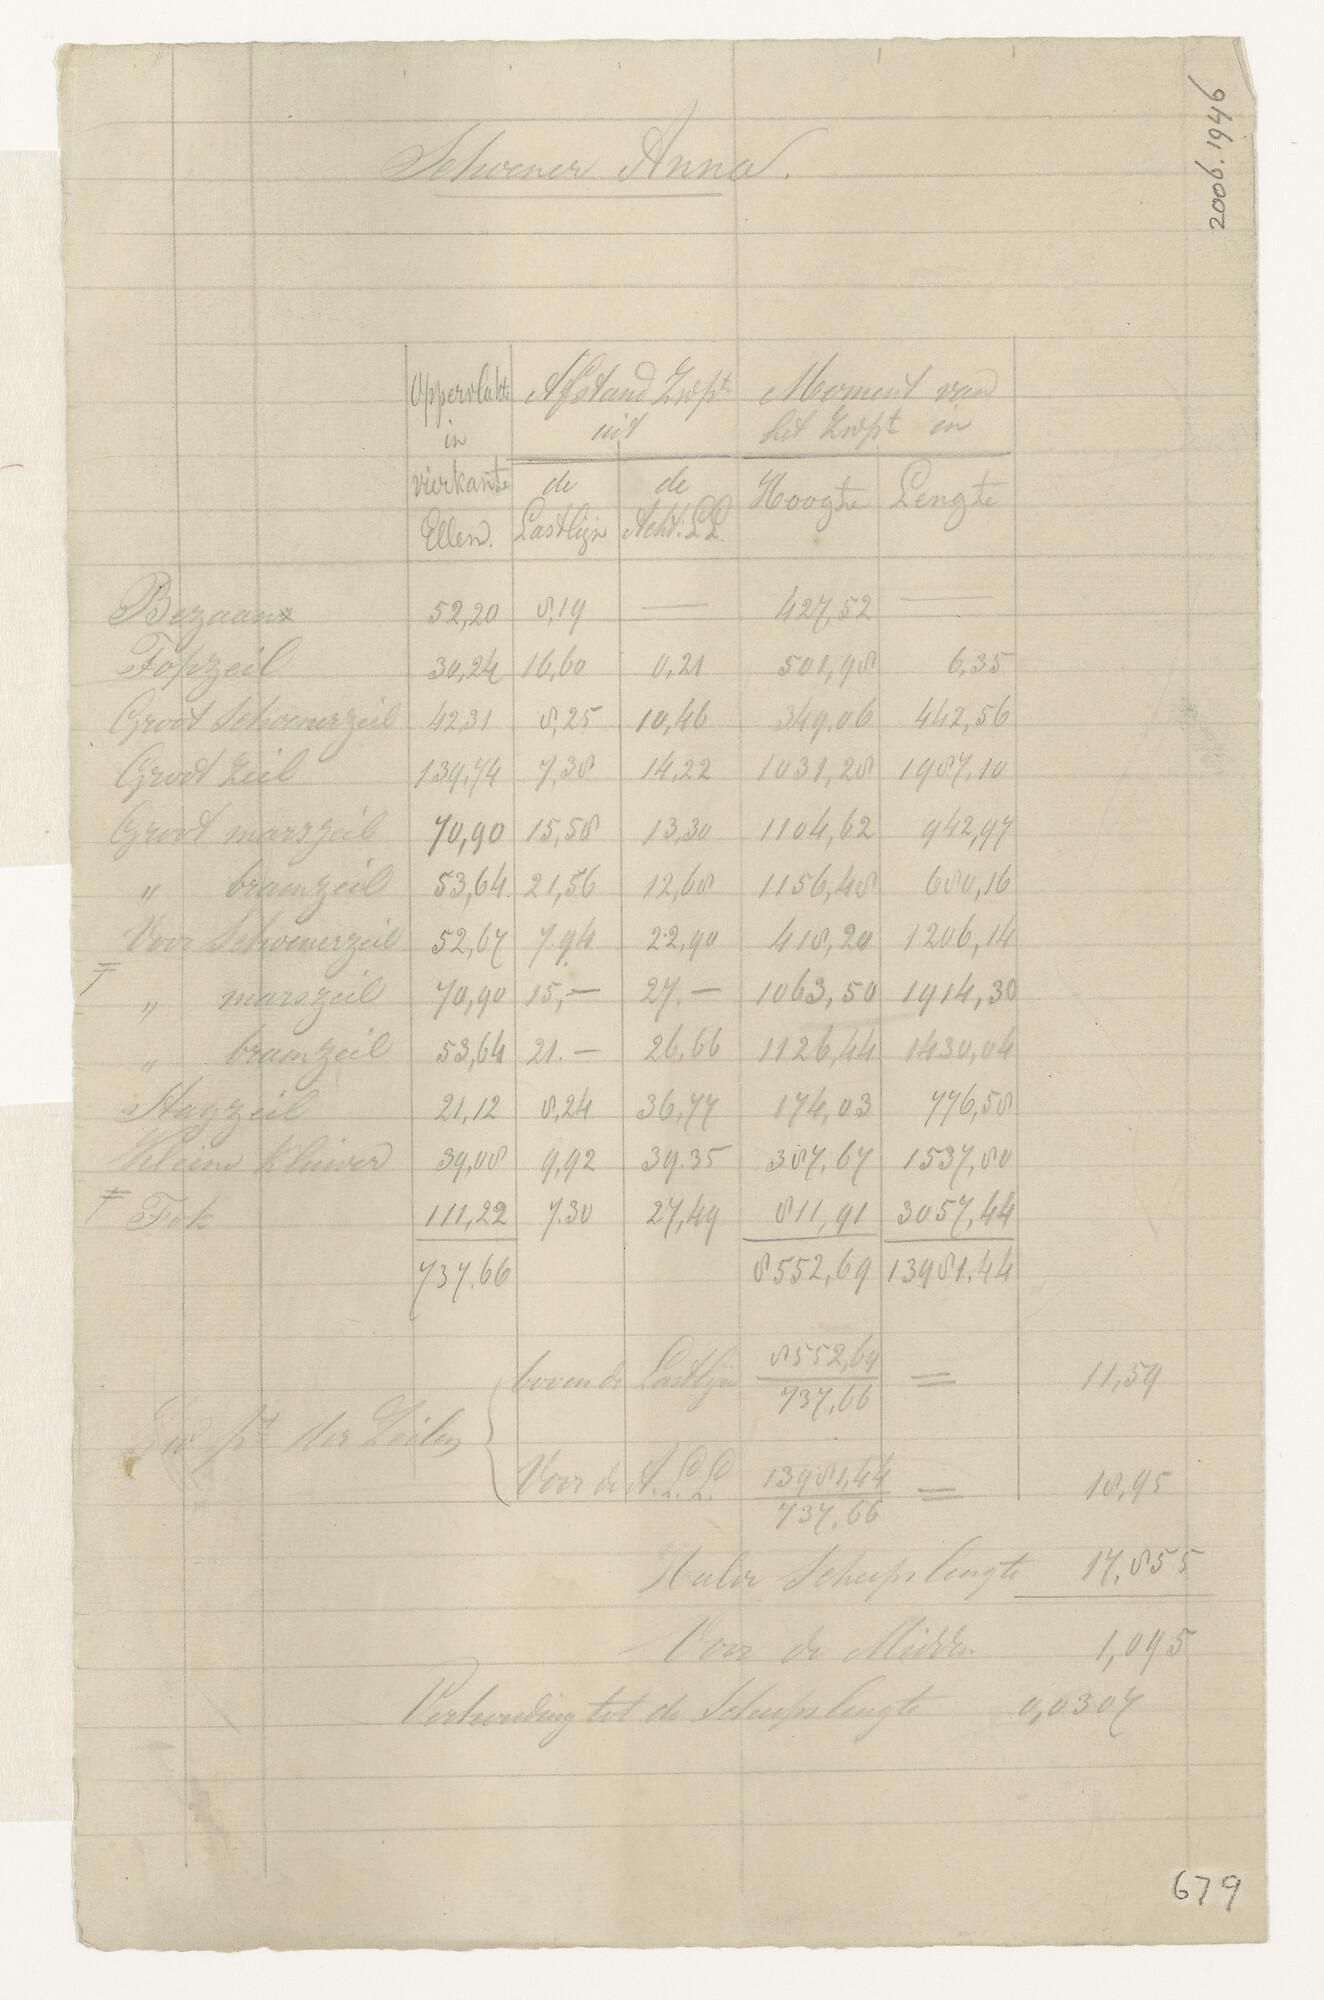 2006.1946
Schoener Anna.
Oppervlakte in vierkante Ellen. Afstand Zwpt uit Moment van het Zwpt in
de Lastlijn de Acht: L.L. Hoogte Lengte
Bezaan 52,20 8,19 — 427,52 —
Topzeil 30,24 16,60 0,21 501,98 6,35
Groot Schoenerzeil 42,31 8,25 10,46 349,06 442,56
Groot Zeil 139,74 7,38 14,22 1031,28 1987,10
Groot marszeil 70,90 15,58 13,30 1104,62 942,97
„ bramzeil 53,64 21,56 12,68 1156,48 680,16
Voor Schoenerzeil 52,67 7.94 22,90 418,20 1206,14
„ marszeil 70,90 15,— 27.— 1063,50 1914,30
„ bramzeil 53,64 21.— 26,66 1126,44 1430,04
Stagzeil 21,12 8,24 36,77 174,03 776,58
Kleine Kluiver 39,08 9,92 39.35 387,67 1537,80
Fok 111,22 7.30 27,49 811,91 3057,44
737.66 8552,69 13981.44
Zwpt der Zeilen { boven de Lastlijn 8552,69 / 737,66 = 11,59
Voor de A.L.L. 13981,44 / 737,66 = 18,95
Halve Scheepslengte 17,855
Voor de Midden 1,095
Verhouding tot de Scheepslengte 0,0307
679